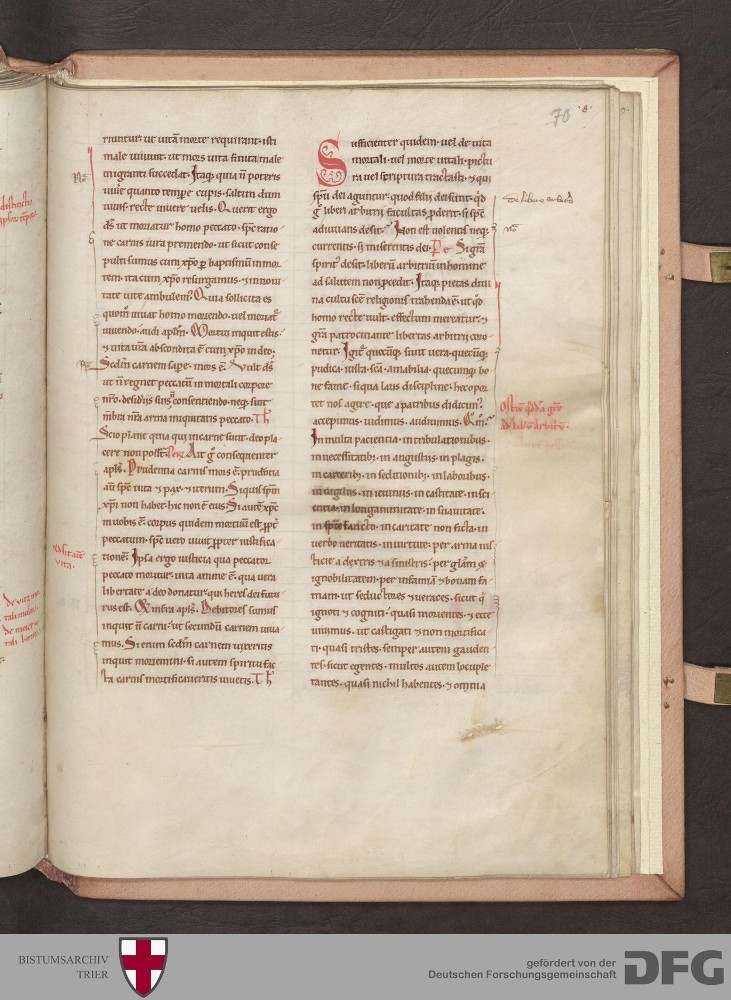 70
·8·
riuntur. ut uitā morte requirant. isti
male uiuunt. ut mors uita finita male
migranti succedat. Itaq; quia ñ poteris
uiuere quanto tempore cupis. saltim dum
uiuis. recte uiuere uelis. Querit ergo
ds̄ ut moriatur homo peccato. spē ratio
ne carnis iura premendo. ut sicut conse
pulti sumus cum xp̄o ꝑ baptismū in mor
tem. ita cum xp̄o resurgamus. & in noui
tate uite ambulem᷒. Quia sollicita es
quom̄ uiuat homo moriendo. uel moriat᷑
uiuendo. audi apl̄m. Mortui inquit estis.
& uita ur̄a abscondita ē cum xp̄o in deo.
Scdm̄ carnem sape. mors ē. Vult ds̄
ut ñ regnet peccatū in mortali corpore
nr̄o. desideriis suis consentiendo. neq; sint
mēbra nr̄a arma iniquitatis peccato. Th̄
Scio plane quia qui in carne sunt. deo pla
cere non possē. Pet᷑ Ait g̊ consequenter
apl̄s. Prudentia carnis mors ē. prudētia
aū spc̄ uita & pax. & iterum. Siquis spm̄
xp̄i non habet. hic non ē eius. Si autē xp̄c
in uobis ē. corpus quidem mortuū est ꝓpt̄
peccatum. spc̄ uero uiuit ꝓpter iustifica
tionē. Ipsa ergo iusticia qua peccator
peccato moritur. uita anime ē. qua uera
libertate a deo donatur. qui heres dei futu
rus est. Et infra apl̄s. Debitores sumus
inquit ñ carni. ut secundū carnem uiua
mus. Si enim scdm̄ carnem uixeritis
inquit moriemini. si autem spiritu fac
ta carnis mortificaueritis uiuetis. Th̄
Sufficienter quidem uel de uita
mortali. uel morte uitali. pictu
ra uel scriptura tractasti. & qui
spū dei aguntur. quod filii dei sint. qd̄
g̊ liberi arbitrii facultas ꝓderit. si spc̄
adiuuans desit. Non est uolentis neq;
currentis. sꝫ miserentis dei. Pe. Si gr̄a
spirit᷒ desit. liberū arbitriū in homine
ad salutem non ꝓcedit. Itaq; pietas diui
na cultu scē religionis trahenda ē. ut qd̄
homo recte uult. effectum mereatur. &
gr̄a patrocinante libertas arbitrii coro
netur. Igit᷑ quecūq; sunt uera. quecūq;
pudica. iusta. scā. amabilia. quecunq; bo
ne fame. siqua laus discipline. hec opor
tet nos agere. que a patribus didicim᷒.
accepimus. uidimus. audiuimus.
In multa pacientia. in tribulationibus.
in necessitatib;. in angustiis. in plagis.
in carcerib;. in seditionib;. in laboribus.
in uigiliis. in ieiuniis. in castitate. in sci
entia. in longanimitate. in suauitate.
in spū sancto. in caritate non ficta. in
uerbo ueritatis. in uirtute. per arma ius
ticie a dextris & a sinistris. per glām &
ignobilitatem. per infamiā & bonam fa
mam. ut seductores & ueraces. sicut q
ignoti & cogniti. quasi morientes. & ecce
uiuimus. ut castigati & non mortifica
ti. quasi tristes. semper autem gauden
tes. sicut egentes. multos autem locuple
tantes. quasi nichil habentes. & omnia
No
de libero arbitrio
No
No
uita.
BISTUMSARCHIV
TRIER
gefördert von der
Deutschen Forschungsgemeinschaft
DFG